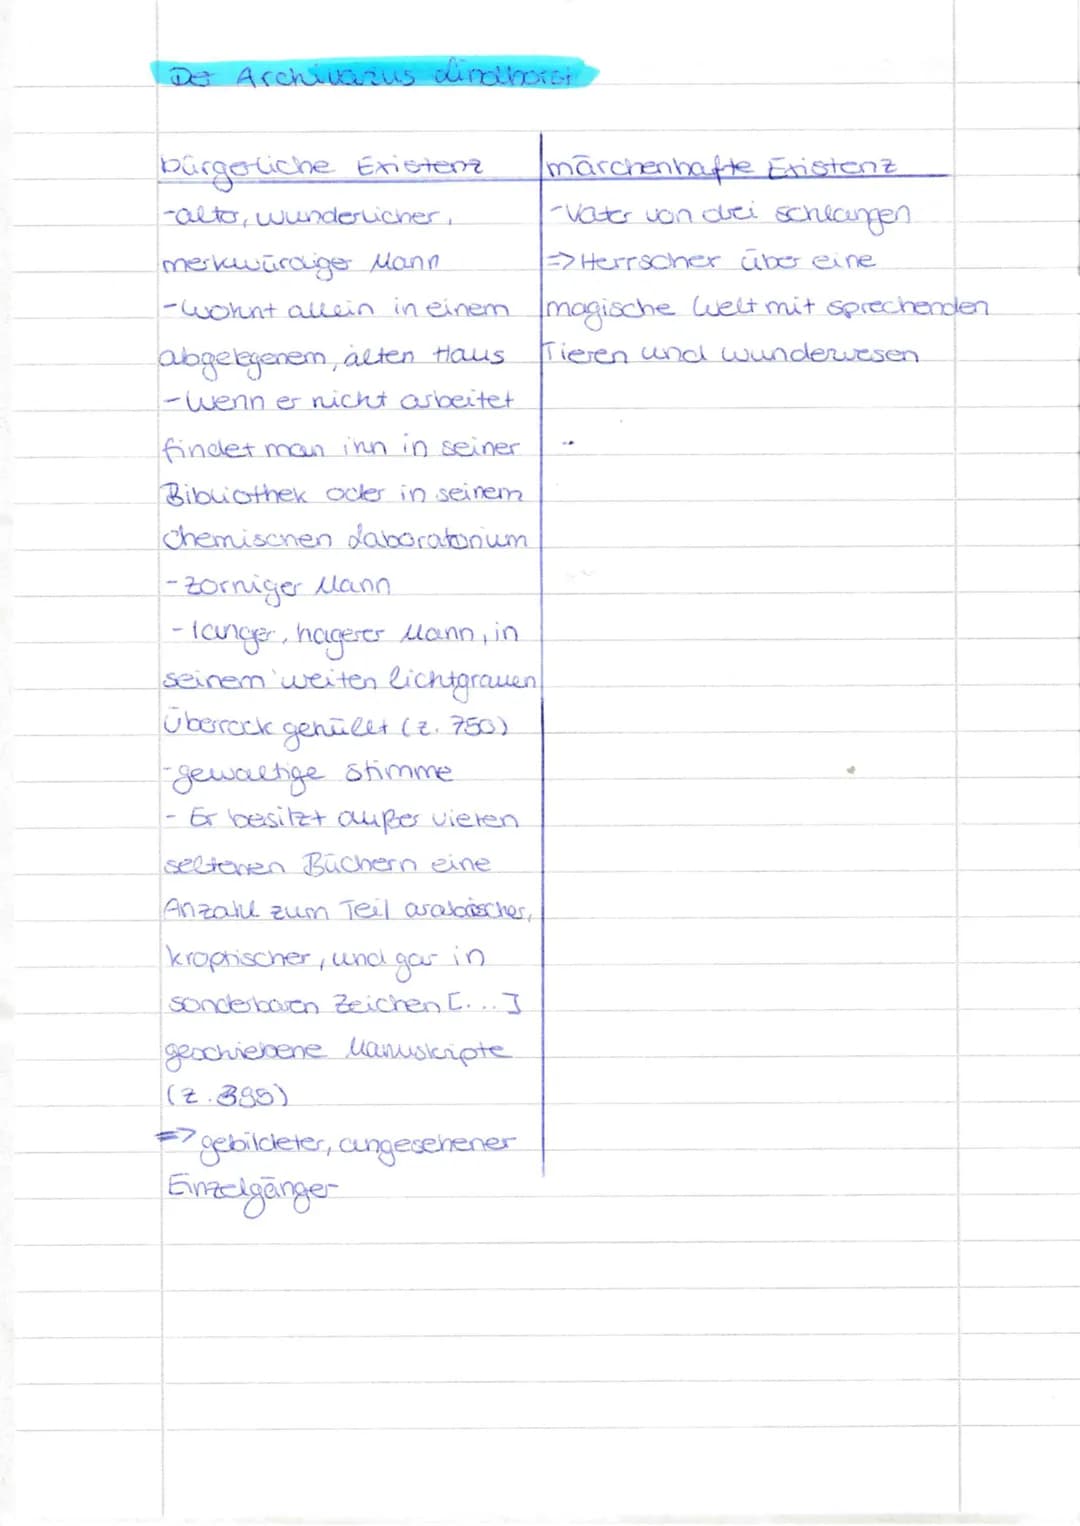 Der Archivarius Lindhorst
bürgerliche Existenz
-alter, wunderlicher,
merkwürdiger Mann
-wohnt allein in einem
abgelegenem, alten Haus
-Wenn er nicht arbeitet
findet man inn in seiner
Bibliothek oder in seinem
chemischen Laboratorium
-zorniger Mann
-langer, hagerer Mann, in
seinem weiten lichtgrauen
Überrock gehüllt (z. 750)
-gewaltige Stimme
- Er besitzt außer vielen
seltenen Büchern eine
Anzahl zum Teil arabischer,
kroptischer, und gar in
sonderbaren Zeichen [...]
geschriebene Manuskripte
(z. 395)
=> gebildeter, angesehener
Einzelgänger
märchenhafte Existenz
-Vater von drei schlangen
=> Herrscher über eine
magische Welt mit sprechenden
Tieren und wunderwesen